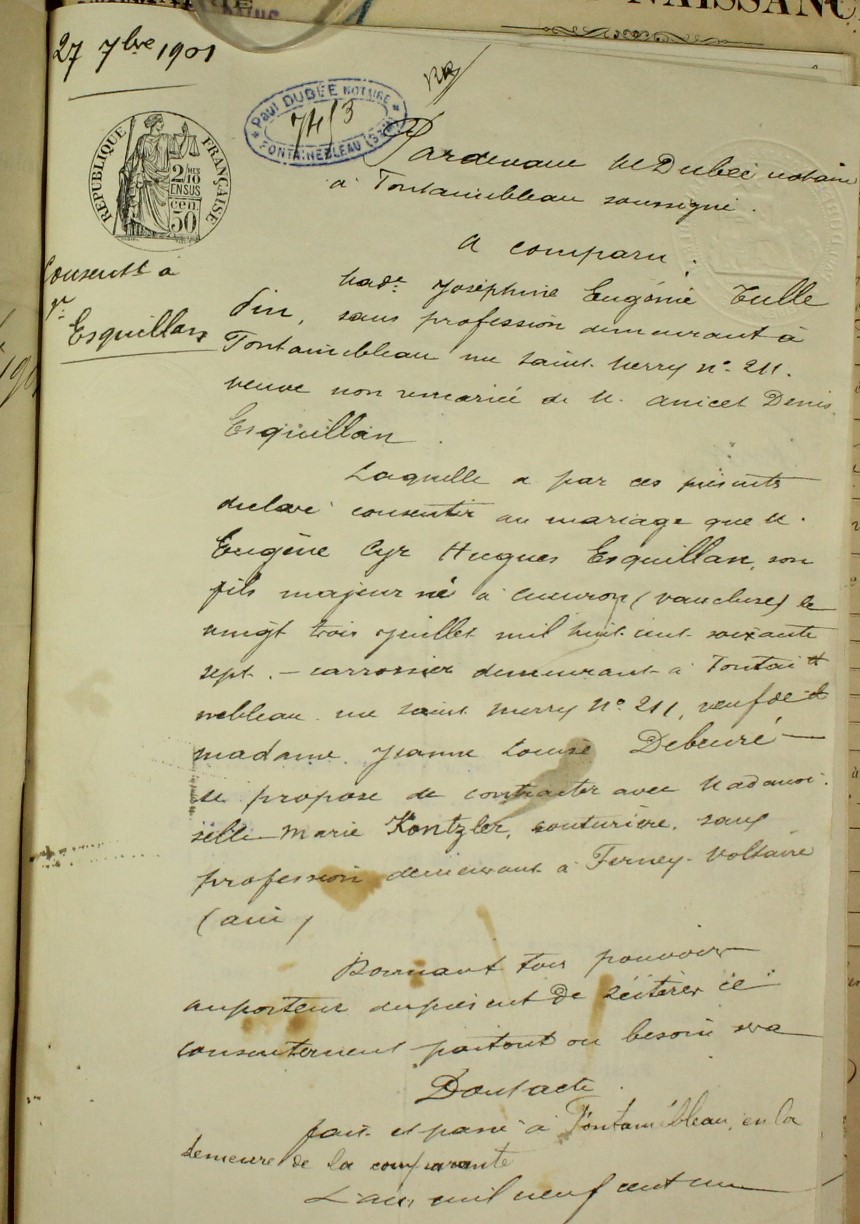 NAISSANC
27 7bre 1901
RÉPUBLIQUE FRANÇAISE
2/10 MES
EN SUS
50 CEN
Paul DUBÉE NOTAIRE
7453
FONTAINEBLEAU (S&M)
Consentt à
Mr
Esquillan
Pardevant Me Dubée notaire
à Fontainebleau soussigné.
A comparu :
Made Joséphine Eugénie Tulle
din, sans profession demeurant à
Fontainebleau rue Saint Merry no 211.
veuve non remariée de M. Anicet Denis
Esquillan.
Laquelle a par ces présents
déclaré consentir au mariage que M.
Eugène Cyr Hugues Esquillan, son
fils majeur né à Cucuron (Vaucluse) le
vingt trois juillet mil huit cent soixante
sept. – carrossier demeurant à Fontai
nebleau rue Saint Merry No 211, veuf de
madame Jeanne Louise Debeuré —
se propose de contracter avec Madamoi
selle Marie Kontzler, couturière, sans
profession demeurant à Ferney-Voltaire
(ain)
Donnant tous pouvoirs
au porteur du présent de réitérer ce
consentement partout où besoin sera
Dont acte.
fait et passé à Fontainebleau, en la
demeure de la comparante
L'an mil neuf cent un